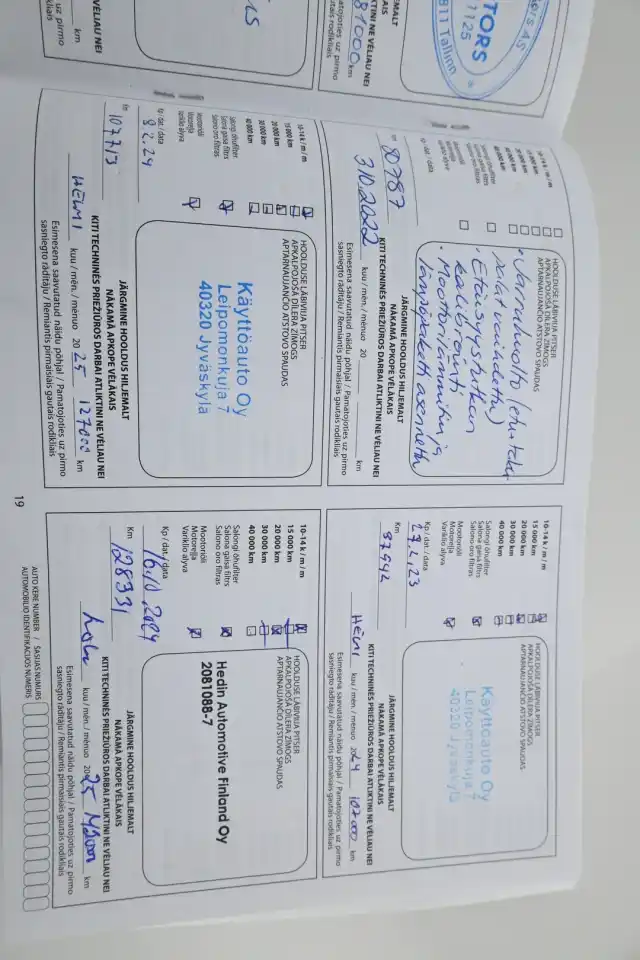 TORS
1125
811 Tallinn
ĒJAMALT
KTINI NE VĒLIAU NEI
81000 km
atojoties uz pirmo
kliais
ĒVELIAU NEI
km
uz pirmo
kliais
10-14 k / m / m
15 000 km
20 000 km
30 000 km
40 000 km
Salongi õhufilter
Salona gaisa filtrs
Salono oro filtras
Mootoriõli
Motoreļļa
Variklio alyva
HOOLDUSE LÄBIVIIJA PITSER
APKALPOJOŠĀ DĪLERA ZĪMOGS
APTARNAUJANČIO ATSTOVO SPAUDAS
palat vaihdettu)
kalibrointi
Kp / dat. / data
Km 80787
3.10.2022
JÄRGMINE HOOLDUS HILJEMALT
NĀKAMĀ APKOPE VĒLĀKAIS
KITI TECHNINĖS PRIEŽIŪROS DARBAI ATLIKTINI NE VĖLIAU NEI
kuu / mēn. / mėnuo 20 km
Esimesena saavutatud näidu põhjal / Pamatojoties uz pirmo
sasniegto rādītāju / Remiantis pirmaisiais gautais rodikliais
10-14 k / m / m
15 000 km
20 000 km
30 000 km
40 000 km
Salongi õhufilter
Salona gaisa filtrs
Salono oro filtras
Mootoriõli
Motoreļļa
Variklio alyva
HOOLDUSE LÄBIVIIJA PITSER
APKALPOJOŠĀ DĪLERA ZĪMOGS
APTARNAUJANČIO ATSTOVO SPAUDAS
Käyttöauto Oy
Leipomonkuja 7
40320 Jyväskylä
Kp / dat. / data
27.2.23
Km 97992
JÄRGMINE HOOLDUS HILJEMALT
NĀKAMĀ APKOPE VĒLĀKAIS
KITI TECHNINĖS PRIEŽIŪROS DARBAI ATLIKTINI NE VĖLIAU NEI
HELMI kuu / mēn. / mėnuo 2024 107000 km
Esimesena saavutatud näidu põhjal / Pamatojoties uz pirmo
sasniegto rādītāju / Remiantis pirmaisiais gautais rodikliais
10-14 k / m / m
15 000 km
20 000 km
30 000 km
40 000 km
Salongi õhufilter
Salona gaisa filtrs
Salono oro filtras
Mootoriõli
Motoreļļa
Variklio alyva
HOOLDUSE LÄBIVIIJA PITSER
APKALPOJOŠĀ DĪLERA ZĪMOGS
APTARNAUJANČIO ATSTOVO SPAUDAS
Käyttöauto Oy
Leipomonkuja 7
40320 Jyväskylä
Kp / dat. / data
8.2.24
Km 107713
JÄRGMINE HOOLDUS HILJEMALT
NĀKAMĀ APKOPE VĒLĀKAIS
KITI TECHNINĖS PRIEŽIŪROS DARBAI ATLIKTINI NE VĖLIAU NEI
HELMI kuu / mēn. / mėnuo 2025 127000 km
Esimesena saavutatud näidu põhjal / Pamatojoties uz pirmo
sasniegto rādītāju / Remiantis pirmaisiais gautais rodikliais
10-14 k / m / m
15 000 km
20 000 km
30 000 km
40 000 km
Salongi õhufilter
Salona gaisa filtrs
Salono oro filtras
Mootoriõli
Motoreļļa
Variklio alyva
HOOLDUSE LÄBIVIIJA PITSER
APKALPOJOŠĀ DĪLERA ZĪMOGS
APTARNAUJANČIO ATSTOVO SPAUDAS
Hedin Automotive Finland Oy
2081088-7
Kp / dat. / data
16.10.2024
Km 128931
JÄRGMINE HOOLDUS HILJEMALT
NĀKAMĀ APKOPE VĒLĀKAIS
KITI TECHNINĖS PRIEŽIŪROS DARBAI ATLIKTINI NE VĖLIAU NEI
Loka kuu / mēn. / mėnuo 2025 km
Esimesena saavutatud näidu põhjal / Pamatojoties uz pirmo
sasniegto rādītāju / Remiantis pirmaisiais gautais rodikliais
19
AUTO KERE NUMBER / ŠASIJAS NUMURS
AUTOMOBILIO IDENTIFIKACIJOS NUMERIS